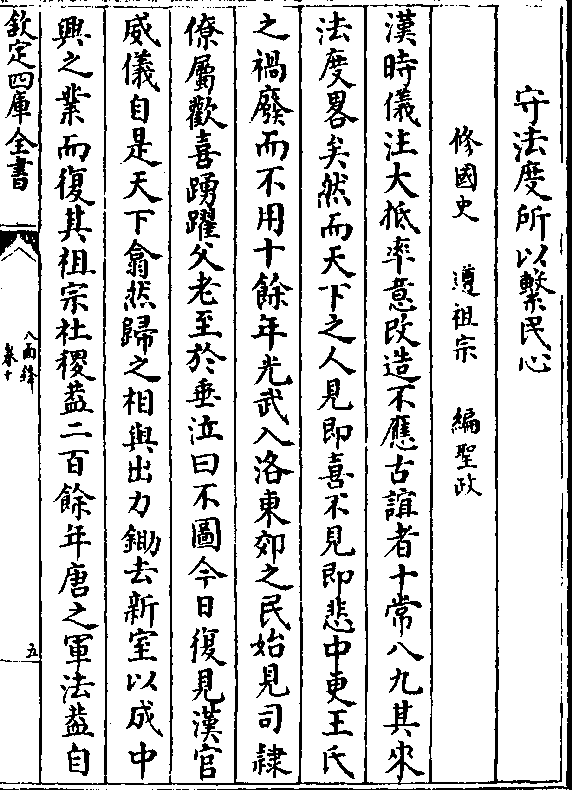 守法度所以繫民心
修國史　遵祖宗　編聖政
漢時儀注大抵率意改造不應古誼者十常八九其來
法度畧矣然而天下之人見即喜不見即悲中更王氏
之禍廢而不用十餘年光武入洛東郊之民始見司隷
僚屬歡喜踴躍父老至於垂泣曰不圖今日復見漢官
威儀自是天下翕然歸之相與出力鋤去新室以成中
興之業而復其祖宗社稷葢二百餘年唐之軍法葢自
欽定四庫全書
八面鋒
卷十
五